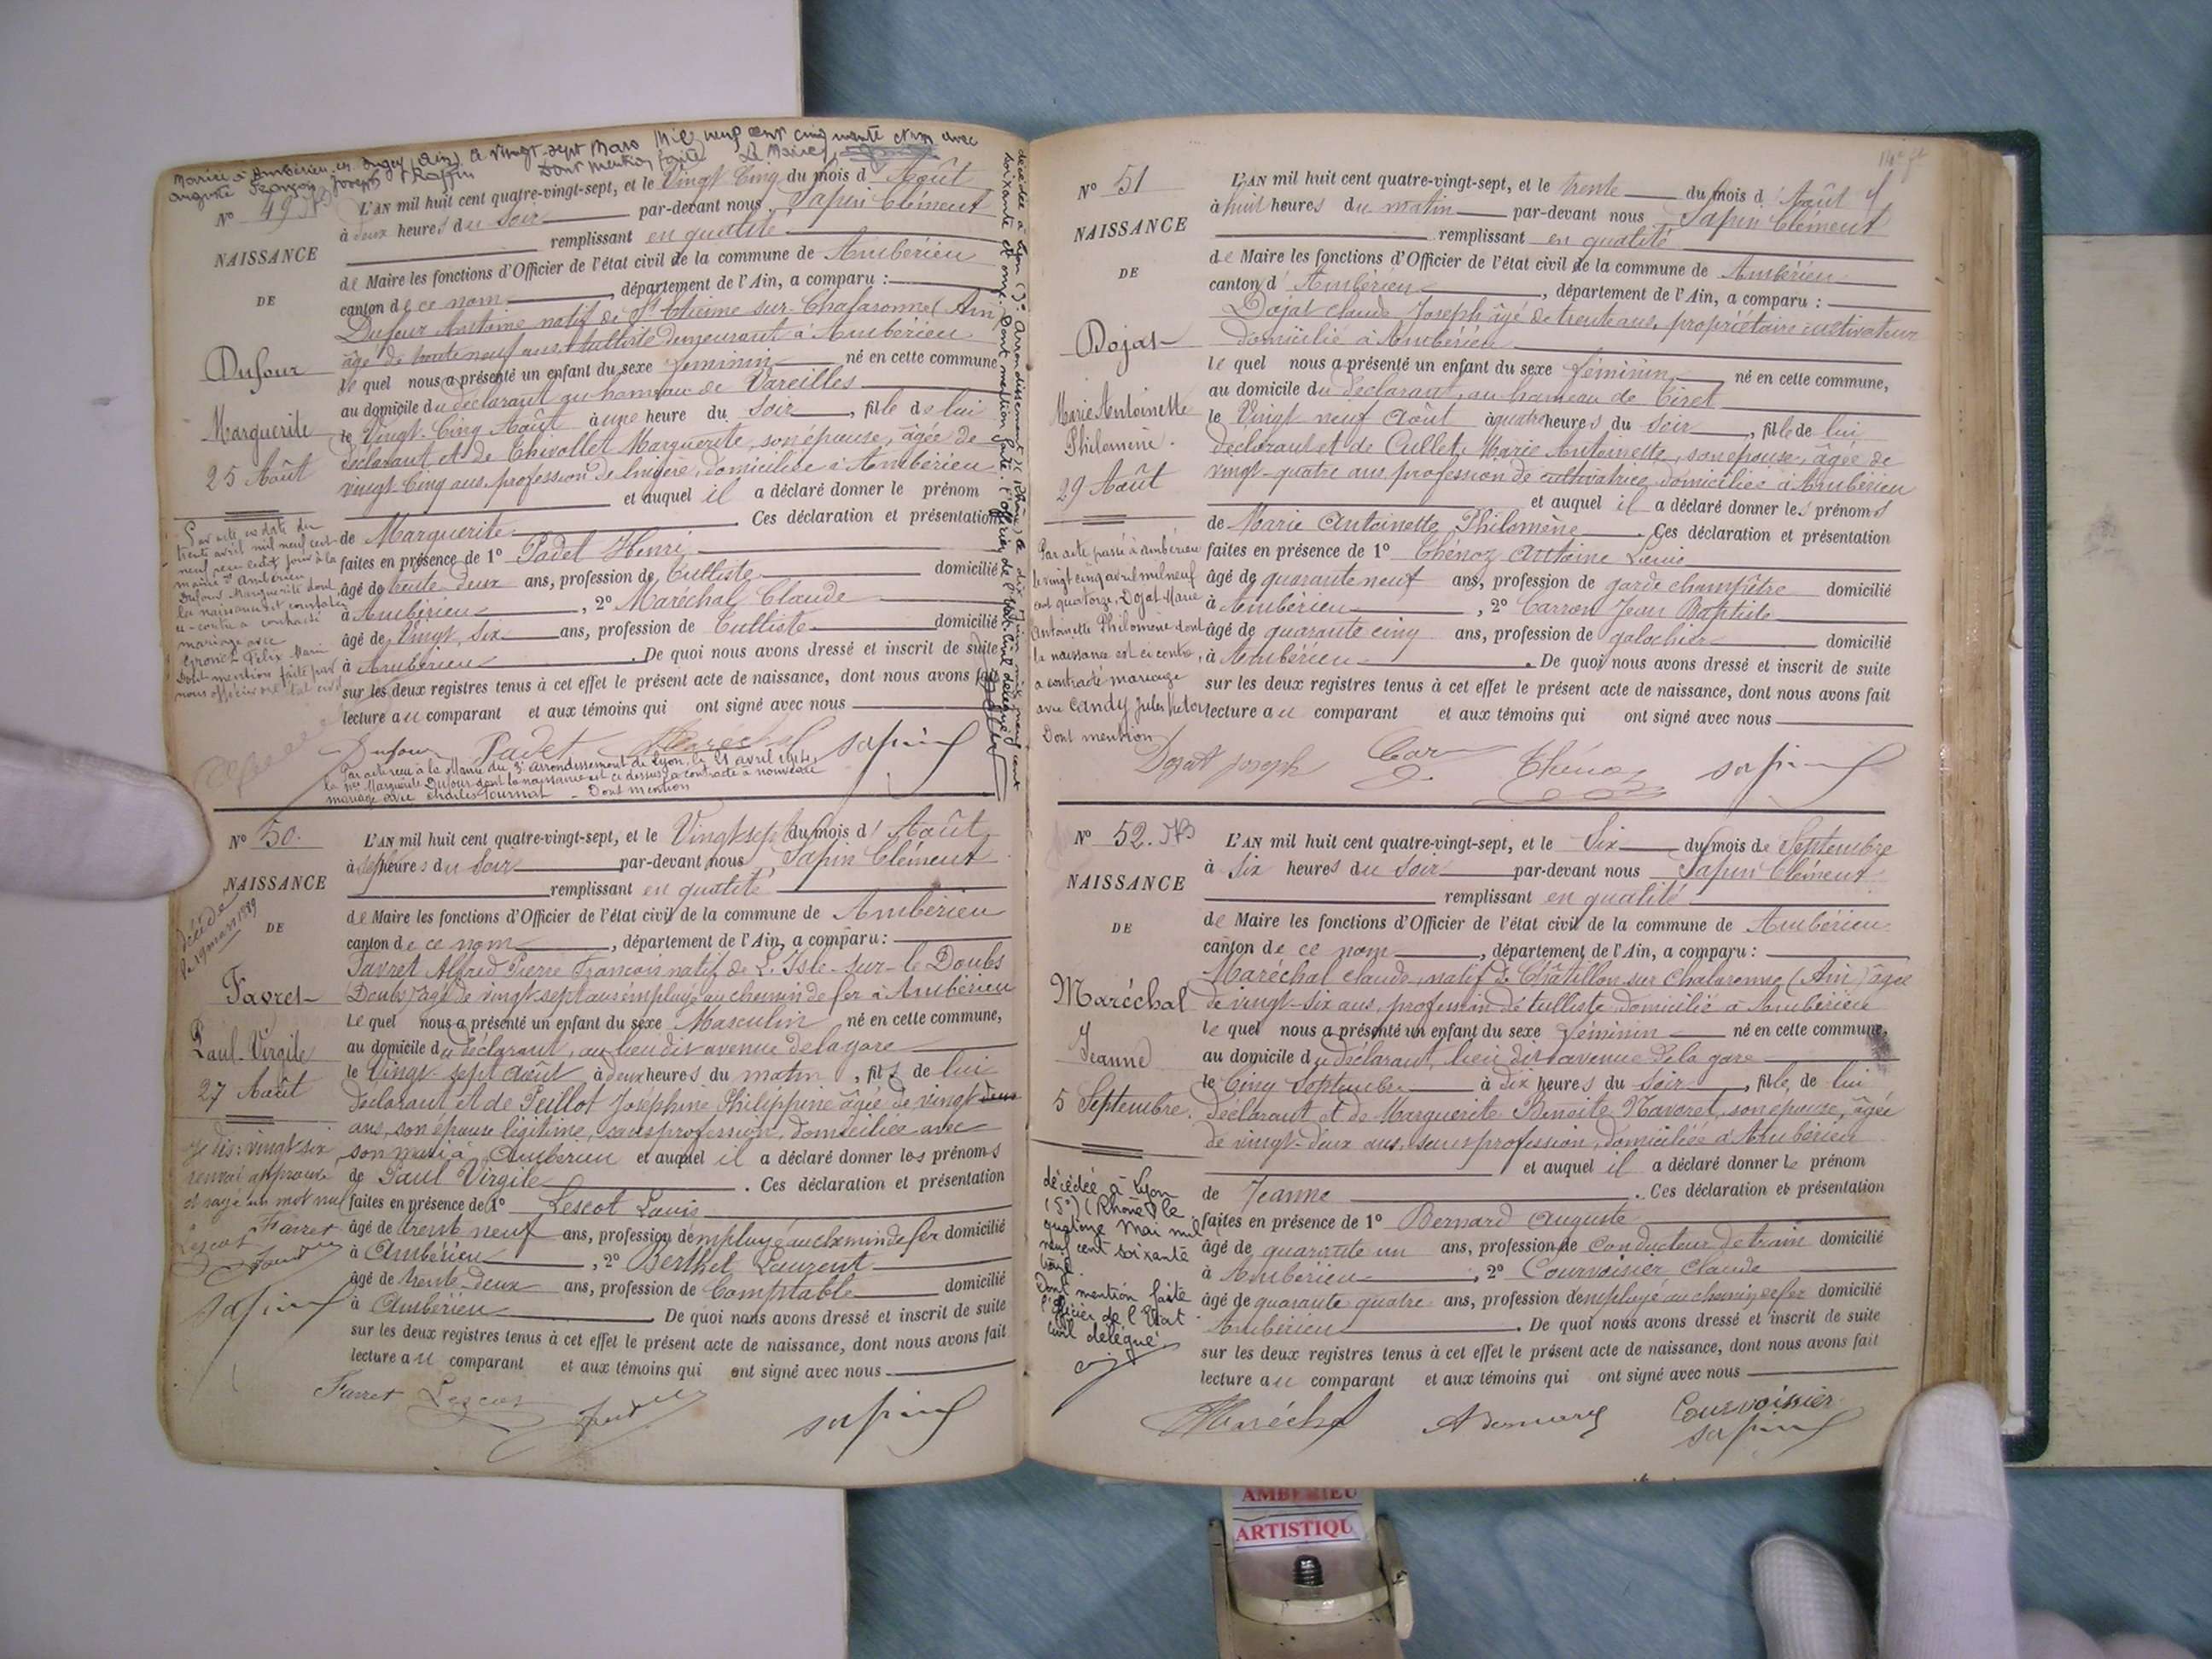 Mariée à Ambérieu en Bugey (Ain) le vingt-sept Mars Mil neuf cent cinquante et un avec
auguste François Joseph Raffin Dont mention faite Le Maire,
N° 49
NAISSANCE
DE
Dufour
Marguerite
25 Août
Par acte en date du
trente avril mil neuf cent
neuf
mairie d'Ambérieu
Dufour Marguerite dont
la naissance est constatée
ci-contre a contracté
mariage avec
Félix Marie
Dont mention faite par
nous officier de l'état civil
L'AN mil huit cent quatre-vingt-sept, et le Vingt Cinq du mois d' Août
à deux heures du Soir par-devant nous Sapin Clément
remplissant en qualité
de Maire les fonctions d'Officier de l'état civil de la commune de Ambérieu
canton de ce nom, département de l'Ain, a comparu :
Dufour Antoine natif de St Etienne sur Chalaronne (Ain)
âgé de trente neuf ans, tulliste demeurant à Ambérieu
le quel nous a présenté un enfant du sexe féminin né en cette commune
au domicile du déclarant au hameau de Vareilles
le Vingt-Cinq Août à une heure du Soir, fille de lui
déclarant et de Thivollet Marguerite, son épouse, âgée de
vingt-cinq ans, profession de lingère, domiciliée à Ambérieu
et auquel il a déclaré donner le prénom
de Marguerite. Ces déclaration et présentation
faites en présence de 1° Padet Henri
âgé de trente deux ans, profession de tulliste domicilié
à Ambérieu, 2° Maréchal Claude
âgé de Vingt six ans, profession de tulliste domicilié
à Ambérieu. De quoi nous avons dressé et inscrit de suite
sur les deux registres tenus à cet effet le présent acte de naissance, dont nous avons fait
lecture au comparant et aux témoins qui ont signé avec nous
Dufour Padet Maréchal Sapin
Par acte reçu à la Mairie du 3e arrondissement de Lyon, le 21 avril 1914,
la née Marguerite Dufour dont la naissance est ci dessus, a contracté à nouveau
mariage avec Charles Tournat - Dont mention
décédée à Lyon (3e Arrondissement) (Rhône) le dix juin mil neuf cent
soixante et onze. Dont mention faite. L'officier de l'état civil délégué
N° 50.
NAISSANCE
DE
décédé
le 19 mars 1989
Favret
Paul-Virgile
27 Août
Je dis : vingt six
renvoi approuvé
et rayé un mot nul
Lescot Favret
Sapin
L'AN mil huit cent quatre-vingt-sept, et le Vingt sept du mois d' Août
à sept heures du Soir par-devant nous Sapin Clément
remplissant en qualité
de Maire les fonctions d'Officier de l'état civil de la commune de Ambérieu
canton de ce nom, département de l'Ain, a comparu :
Favret Alfred Pierre François natif de L'Isle-sur-le Doubs
(Doubs) âgé de vingt sept ans employé au chemin de fer à Ambérieu
le quel nous a présenté un enfant du sexe Masculin né en cette commune,
au domicile du déclarant, au lieu dit avenue de la gare
le Vingt sept août à deux heures du matin, fils de lui
déclarant et de Peillot Joséphine Philippine âgée de vingt deux
ans, son épouse légitime, sans profession, domiciliée avec
son mari à Ambérieu et auquel il a déclaré donner les prénoms
de Paul Virgile. Ces déclaration et présentation
faites en présence de 1° Lescot Louis
âgé de trente neuf ans, profession d'employé au chemin de fer domicilié
à Ambérieu, 2° Berthet Laurent
âgé de trente-deux ans, profession de Comptable domicilié
à Ambérieu. De quoi nous avons dressé et inscrit de suite
sur les deux registres tenus à cet effet le présent acte de naissance, dont nous avons fait
lecture au comparant et aux témoins qui ont signé avec nous
Favret Lescot Sapin
N° 51
NAISSANCE
DE
Dojat
Marie Antoinette
Philomène.
29 Août
Par acte passé à Ambérieu
le vingt cinq avril mil neuf
cent quatorze, Dojat Marie
Antoinette Philomène dont
la naissance est ci contre,
a contracté mariage
avec Candy Jules Victor
Dont mention
L'AN mil huit cent quatre-vingt-sept, et le trente du mois d' Août
à huit heures du matin par-devant nous Sapin Clément
remplissant en qualité
de Maire les fonctions d'Officier de l'état civil de la commune de Ambérieu
canton d' Ambérieu, département de l'Ain, a comparu :
Dojat Claude Joseph âgé de trente ans, propriétaire cultivateur
domicilié à Ambérieu
le quel nous a présenté un enfant du sexe féminin né en cette commune,
au domicile du déclarant, au hameau de Tiret
le Vingt neuf Août à quatre heures du soir, fille de lui
déclarant et de Cullet, Marie Antoinette, son épouse, âgée de
vingt-quatre ans profession de cultivatrice, domiciliée à Ambérieu
et auquel il a déclaré donner les prénoms
de Marie Antoinette Philomène. Ces déclaration et présentation
faites en présence de 1° Chénoz Antoine Louis
âgé de quarante neuf ans, profession de garde champêtre domicilié
à Ambérieu, 2° Carron Jean Baptiste
âgé de quarante cinq ans, profession de galochier domicilié
à Ambérieu. De quoi nous avons dressé et inscrit de suite
sur les deux registres tenus à cet effet le présent acte de naissance, dont nous avons fait
lecture au comparant et aux témoins qui ont signé avec nous
Dojat Joseph Car Chénoz Sapin
N° 52.
NAISSANCE
DE
Maréchal
Jeanne
5 Septembre.
décédée à Lyon
(5e) (Rhône) le
quatorze Mai mil
neuf cent soixante
Dont mention faite
l'Officier de l'Etat
Civil délégué
L'AN mil huit cent quatre-vingt-sept, et le Six du mois de Septembre
à Six heures du Soir par-devant nous Sapin Clément
remplissant en qualité
de Maire les fonctions d'Officier de l'état civil de la commune de Ambérieu
canton de ce nom, département de l'Ain, a comparu :
Maréchal Claude, natif de Châtillon sur Chalaronne (Ain) âgé
de vingt-six ans, profession de tulliste domicilié à Ambérieu
le quel nous a présenté un enfant du sexe féminin né en cette commune,
au domicile du déclarant, lieu dit avenue de la gare
le Cinq Septembre à dix heures du Soir, fille de lui
déclarant et de Marguerite Benoite Navoret, son épouse, âgée
de vingt-deux ans, sans profession, domiciliée à Ambérieu
et auquel il a déclaré donner le prénom
de Jeanne. Ces déclaration et présentation
faites en présence de 1° Bernard Auguste
âgé de quarante un ans, profession de conducteur de train domicilié
à Ambérieu, 2° Courvoisier Claude
âgé de quarante quatre ans, profession d'employé au chemin de fer domicilié
Ambérieu. De quoi nous avons dressé et inscrit de suite
sur les deux registres tenus à cet effet le présent acte de naissance, dont nous avons fait
lecture au comparant et aux témoins qui ont signé avec nous
Maréchal ABernard Courvoisier
Sapin
AMBERIEU
ARTISTIQU